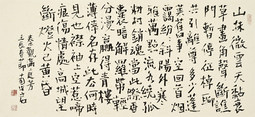 山抹微雲天黏衰
草畫角聲斷譙
門暫停征棹聊
共引離尊多少
蓬萊舊事空回首煙
靄紛紛斜陽外寒
鴉萬點流水繞孤
村銷魂當此際香
囊暗解羅帶輕
分謾贏得青樓
薄倖名存此去何時
見也襟袖上空惹啼
痕傷情處高城望
斷燈火已黃昏
秦觀滿庭芳